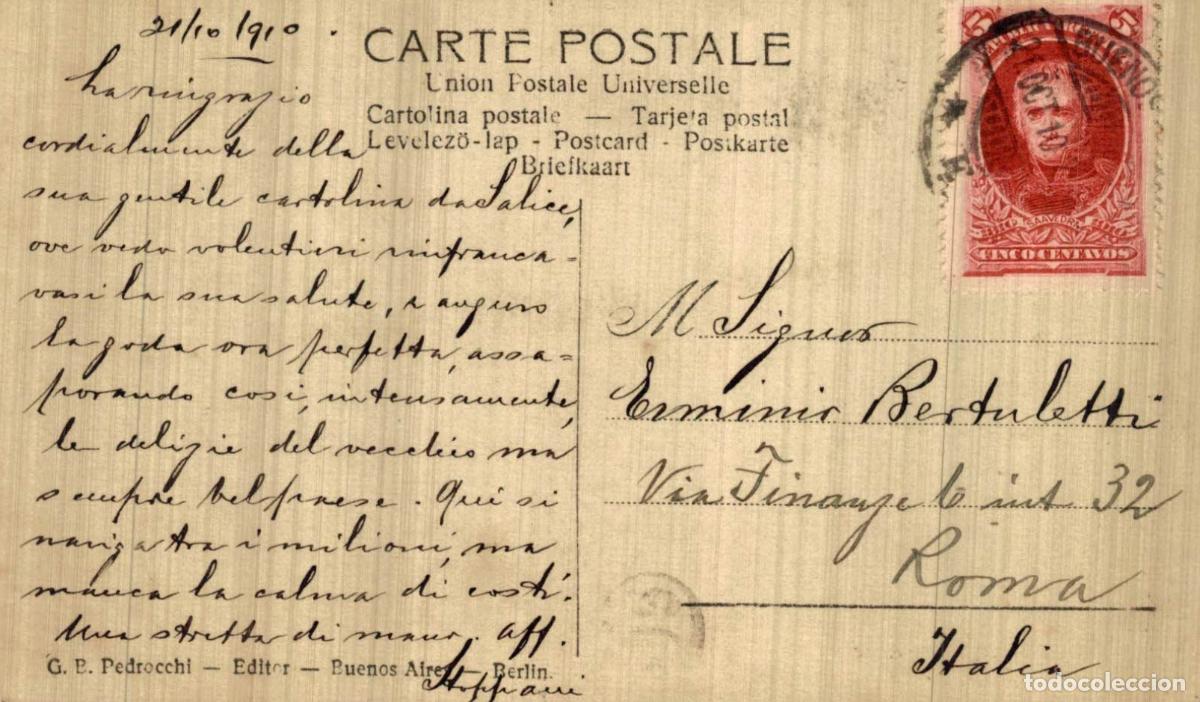 21/10/910.
La ringrazio
cordialmente della
sua gentile cartolina da Salice,
ove vedo volentieri rinfranca-
vasi la sua salute, e auguro
la goda ora perfetta, assa=
porando così, intensamente,
le delizie del vecchio ma
sempre bel paese. Qui si
naviga tra i milioni, ma
manca la calma di costì.
Una stretta di mano. Aff.
Stoppani
CARTE POSTALE
Union Postale Universelle
Cartolina postale — Tarjeta postal
Levelezö-lap - Postcard - Postkarte
Briefkaart
5 5
BUENOS
OCT 10
SAAVEDRA
CINCO CENTAVOS
Al Signor
Erminio Bertuletti
Via Finanze 6 int 32
Roma
Italia
G. B. Pedrocchi — Editor — Buenos Aires — Berlin.
todocoleccion